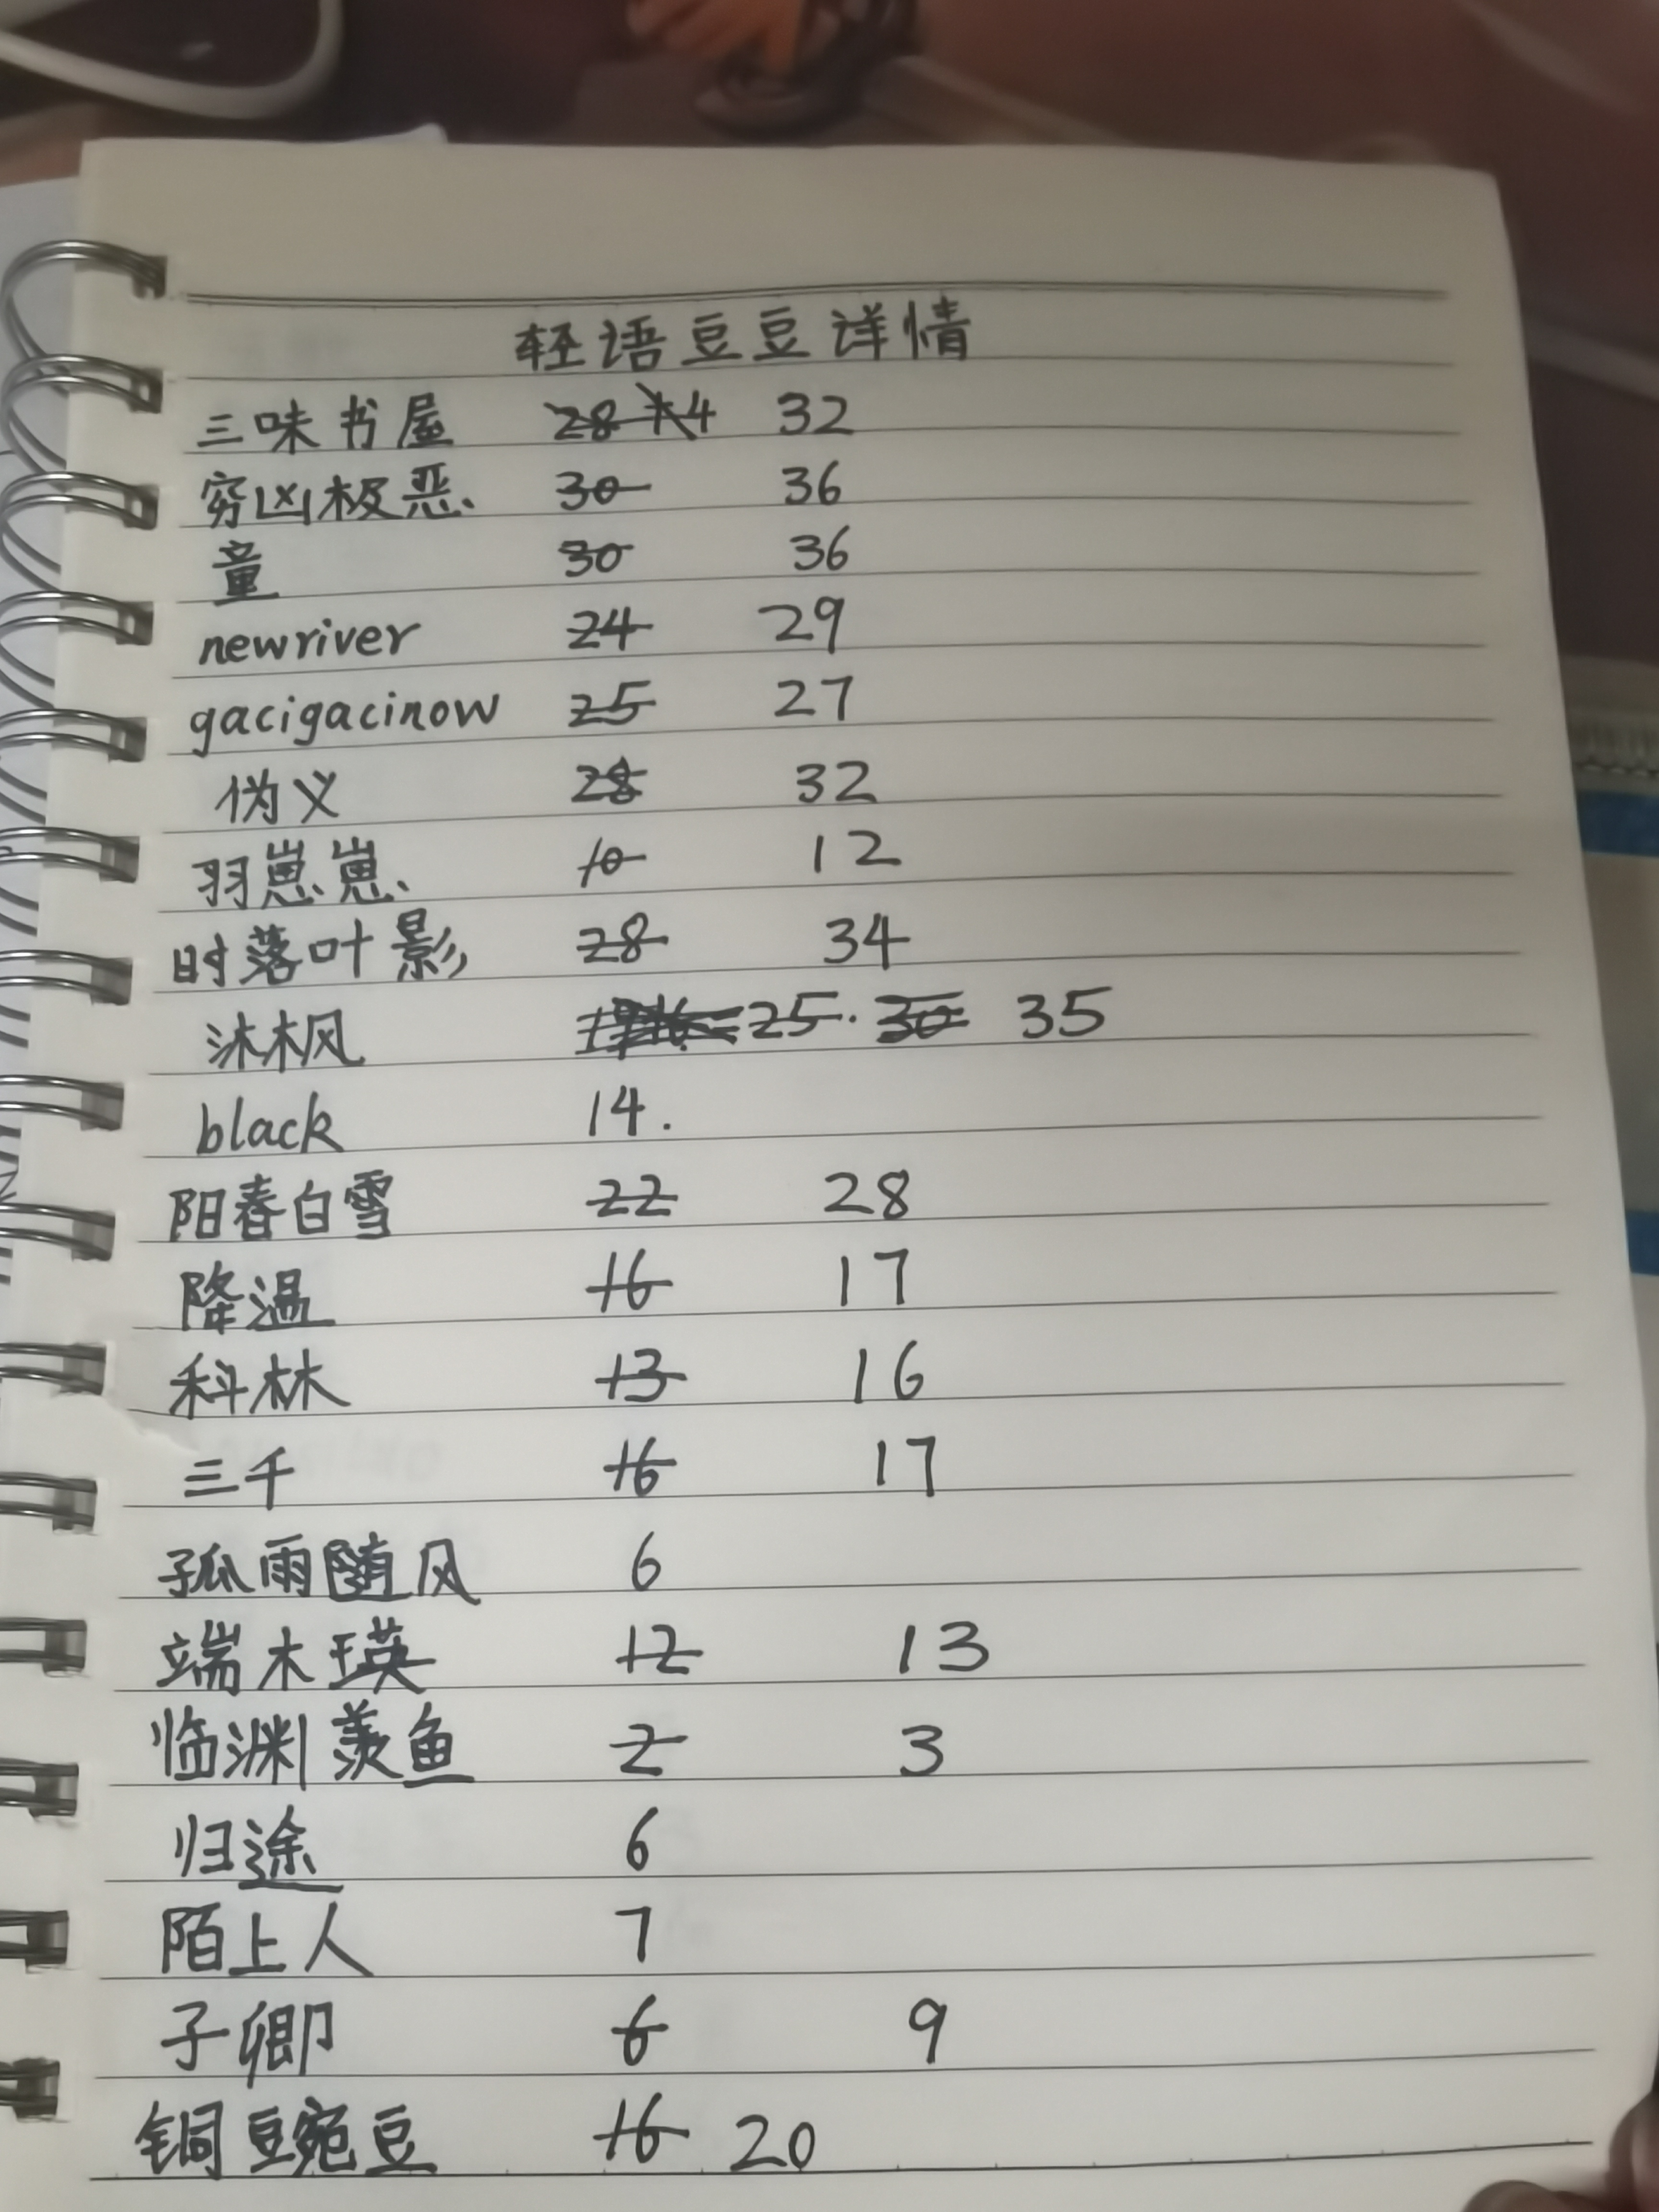 轻语豆豆详情
三味书屋 28 32
穷凶极恶 30 36
童 30 36
newriver 24 29
gacigacinow 25 27
伪义 28 32
羽崽崽 10 12
时落叶影 28 34
沐枫 25. 30 35
black 14.
阳春白雪 22 28
降温 16 17
科林 13 16
三千 16 17
孤雨随风 6
端木瑛 12 13
临渊羡鱼 2 3
归途 6
陌上人 7
子卿 6 9
铜豆豌豆 16 20